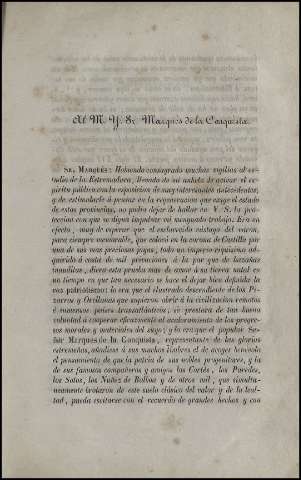 Al M. Y. Sr. Marques de la Conquista.
Sr. Marqués: Habiendo consagrado muchas vigilias al es-
tudio de la Estremadura, llevado de mi anhelo de avivar el es-
píritu público con la esposicion de muy interesantes antecedentes,
y de estimularle á pensar en la reorganizacion que exige el estado
de estas provincias, no podia dejar de hallar en V. S. la pro-
teccion con que se dignó impulsar mi menguado trabajo. Era en
efecto, muy de esperar que el esclarecido vástago del varon,
para siempre memorable, que colocó en la corona de Castilla por
una de sus mas preciosas joyas, todo un imperio vastísimo ad-
quirido á costa de mil privaciones á la par que de hazañas
inauditas, diera esta prueba mas de amor á su tierra natal en
un tiempo en que tan necesario se hace el dejar bien definido lo
que patriotismo: lo era que el ilustrado descendiente de los Pi-
zarros y Orellanas que supieron abrir á la civilizacion remotos
é inmensos paises trasatlánticos, se prestara de tan buena
voluntad á cooperar eficazmente al acaloramiento de los progre-
sos morales y materiales del suyo; y lo era que el popular Se-
ñor Marques de la Conquista, representante de las glorias
estremeñas, añadiese á sus muchos timbres el de acoger benévolo
el pensamiento de que la pátria de sus nobles progenitores, y la
de sus famosos compañeros y amigos los Cortés, los Paredes,
los Sotos, los Nuñez de Balboa y de otros mil, que simultá-
neamente brotaron de este suelo clásico del valor y de la leal-
tad, pueda escitarse con el recuerdo de grandes hechos y con